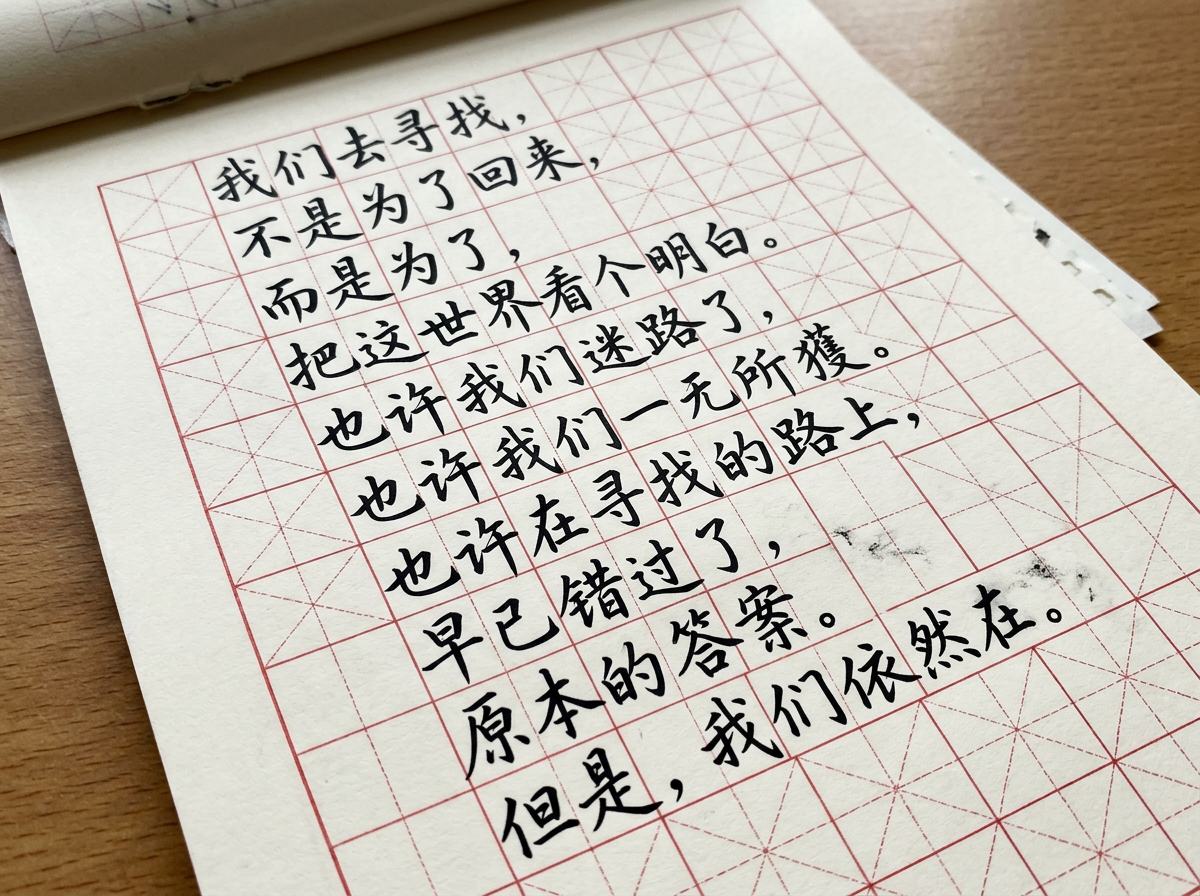 我们去寻找，
不是为了回来，
而是为了，
把这世界看个明白。
也许我们迷路了，
也许我们一无所獲。
也许在寻找的路上，
早已错过了，
原本的答案。
但是，我们依然在。